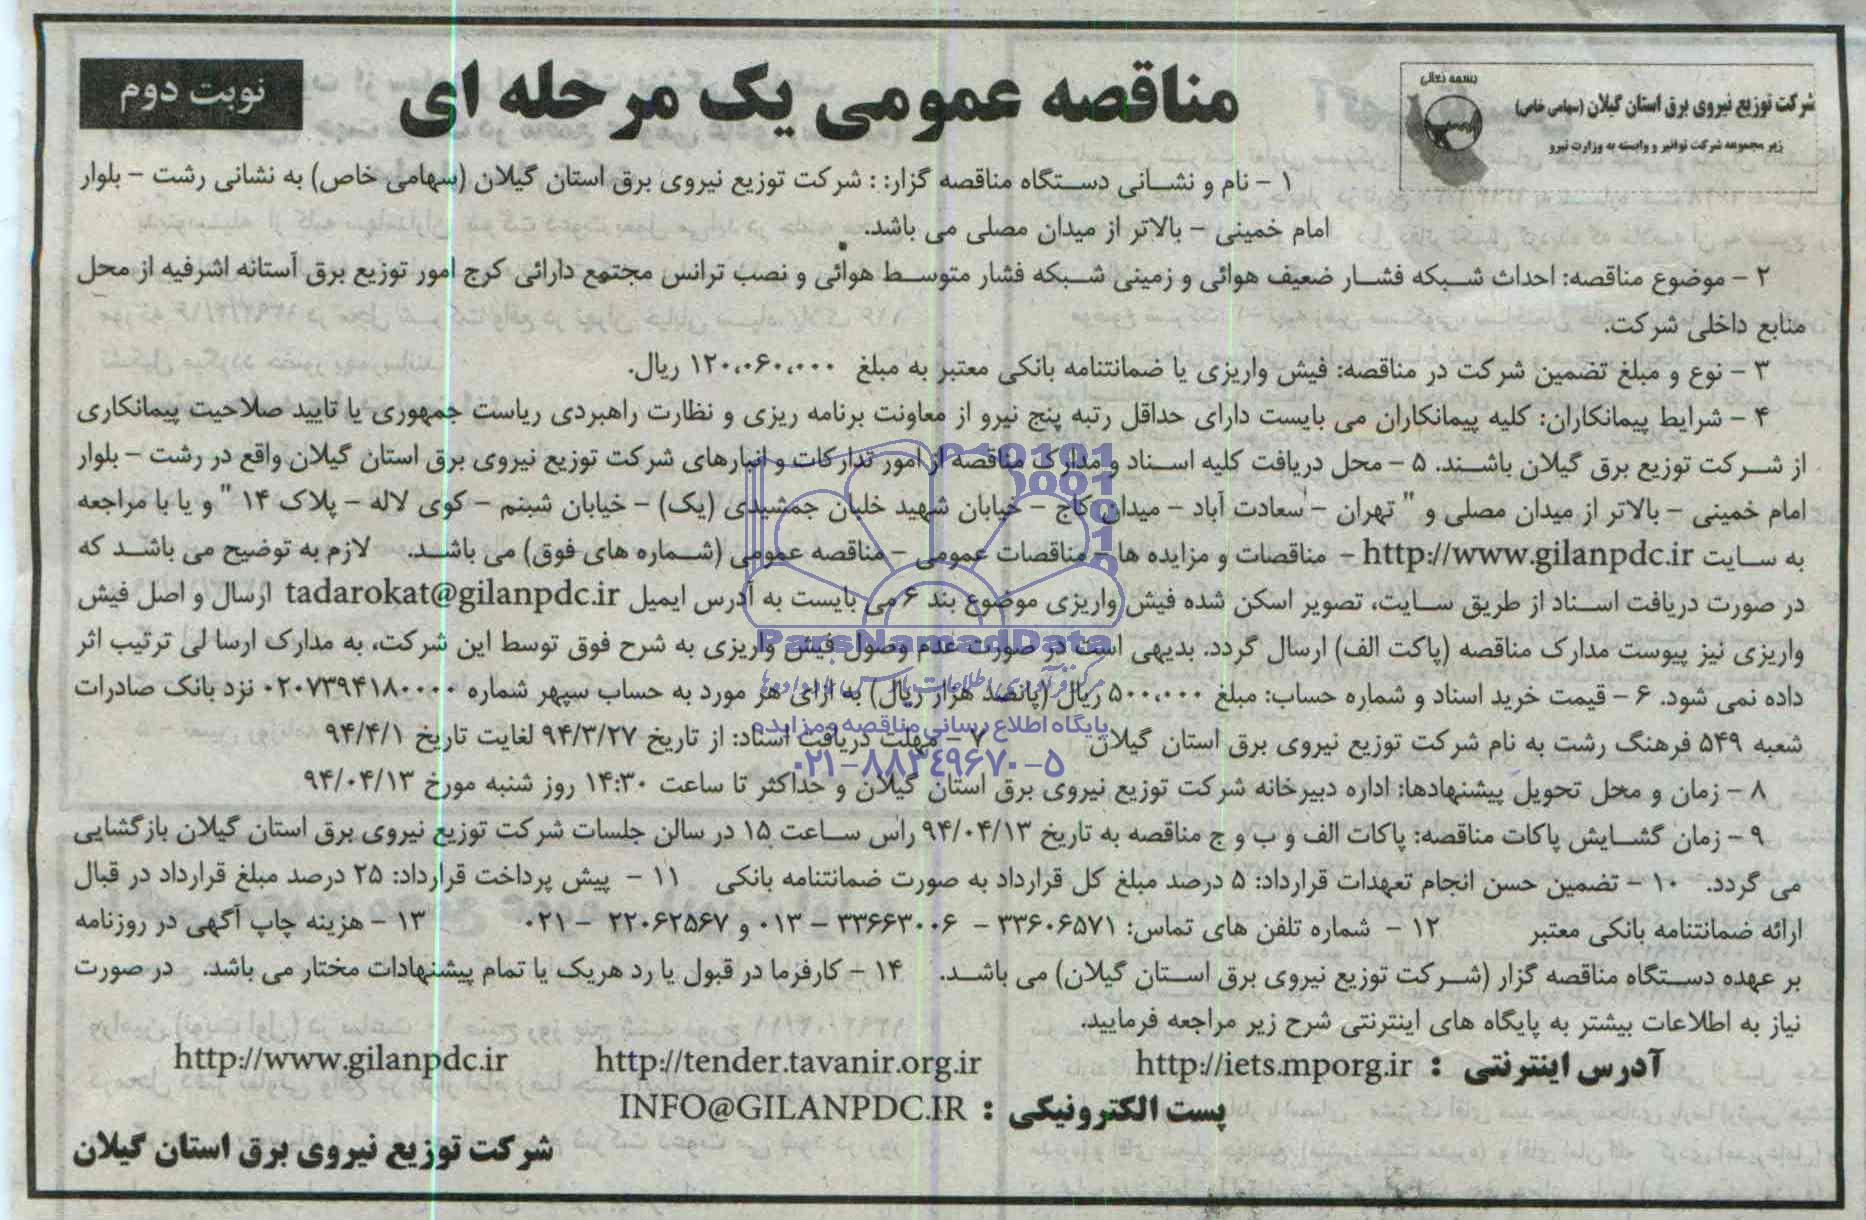 بسمه تعالی
شرکت توزیع نیروی برق استان گیلان (سهامی خاص)
زیر مجموعه شرکت توانیر و وابسته به وزارت نیرو
مناقصه عمومی یک مرحله ای
نوبت دوم
۱ - نام و نشانی دستگاه مناقصه گزار: : شرکت توزیع نیروی برق استان گیلان (سهامی خاص) به نشانی رشت - بلوار
امام خمینی - بالاتر از میدان مصلی می باشد.
۲ - موضوع مناقصه: احداث شبکه فشار ضعیف هوائی و زمینی شبکه فشار متوسط هوائی و نصب ترانس مجتمع دارائی کرج امور توزیع برق آستانه اشرفیه از محل
منابع داخلی شرکت.
۳ - نوع و مبلغ تضمین شرکت در مناقصه: فیش واریزی یا ضمانتنامه بانکی معتبر به مبلغ ۱۲۰،۰۶۰،۰۰۰ ریال.
۴ - شرایط پیمانکاران: کلیه پیمانکاران می بایست دارای حداقل رتبه پنج نیرو از معاونت برنامه ریزی و نظارت راهبردی ریاست جمهوری یا تایید صلاحیت پیمانکاری
از شرکت توزیع برق گیلان باشند. ۵ - محل دریافت کلیه اسناد و مدارک مناقصه از امور تدارکات و انبارهای شرکت توزیع نیروی برق استان گیلان واقع در رشت - بلوار
امام خمینی - بالاتر از میدان مصلی و " تهران - سعادت آباد - میدان کاج - خیابان شهید خلبان جمشیدی (یک) - خیابان شبنم - کوی لاله - پلاک ۱۴ " و یا با مراجعه
به سایت http://www.gilanpdc.ir - مناقصات و مزایده ها - مناقصات عمومی - مناقصه عمومی (شماره های فوق) می باشد. لازم به توضیح می باشد که
در صورت دریافت اسناد از طریق سایت، تصویر اسکن شده فیش واریزی موضوع بند ۶ می بایست به آدرس ایمیل tadarokat@gilanpdc.ir ارسال و اصل فیش
واریزی نیز پیوست مدارک مناقصه (پاکت الف) ارسال گردد. بدیهی است در صورت عدم وصول فیش واریزی به شرح فوق توسط این شرکت، به مدارک ارسا لی ترتیب اثر
داده نمی شود. ۶ - قیمت خرید اسناد و شماره حساب: مبلغ ۵۰۰،۰۰۰ ریال (پانصد هزار ریال) به ازای هر مورد به حساب سپهر شماره ۰۲۰۷۳۹۴۱۸۰۰۰۰ نزد بانک صادرات
شعبه ۵۴۹ فرهنگ رشت به نام شرکت توزیع نیروی برق استان گیلان ۷ - مهلت دریافت اسناد: از تاریخ ۹۴/۳/۲۷ لغایت تاریخ ۹۴/۴/۱
۸ - زمان و محل تحویل پیشنهادها: اداره دبیرخانه شرکت توزیع نیروی برق استان گیلان و حداکثر تا ساعت ۱۴:۳۰ روز شنبه مورخ ۹۴/۰۴/۱۳
۹ - زمان گشایش پاکات مناقصه: پاکات الف و ب و ج مناقصه به تاریخ ۹۴/۰۴/۱۳ راس ساعت ۱۵ در سالن جلسات شرکت توزیع نیروی برق استان گیلان بازگشایی
می گردد. ۱۰ - تضمین حسن انجام تعهدات قرارداد: ۵ درصد مبلغ کل قرارداد به صورت ضمانتنامه بانکی ۱۱ - پیش پرداخت قرارداد: ۲۵ درصد مبلغ قرارداد در قبال
ارائه ضمانتنامه بانکی معتبر ۱۲ - شماره تلفن های تماس: ۳۳۶۰۶۵۷۱ - ۳۳۶۶۳۰۰۶ - ۰۱۳ و ۲۲۰۶۲۵۶۷ - ۰۲۱ ۱۳ - هزینه چاپ آگهی در روزنامه
بر عهده دستگاه مناقصه گزار (شرکت توزیع نیروی برق استان گیلان) می باشد. ۱۴ - کارفرما در قبول یا رد هریک یا تمام پیشنهادات مختار می باشد. در صورت
نیاز به اطلاعات بیشتر به پایگاه های اینترنتی شرح زیر مراجعه فرمایید.
آدرس اینترنتی : http://iets.mporg.ir http://tender.tavanir.org.ir http://www.gilanpdc.ir
پست الکترونیکی : INFO@GILANPDC.IR
شرکت توزیع نیروی برق استان گیلان
ParsNamadData
پایگاه اطلاع رسانی مناقصه و مزایده
۰۲۱-۸۸۳۴۹۶۷۰-۵